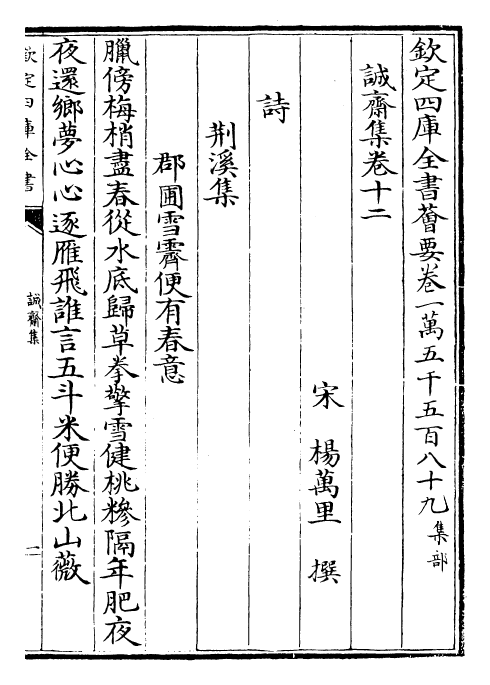 欽定四庫全書薈要卷一萬五千五百八十九集部
誠齋集卷十二
宋 楊萬里 撰
詩
荆溪集
郡圃雪霽便有春意
臘傍梅梢盡春從水底歸草拳擎雪健桃糝隔年肥夜
夜還鄉夢心心逐雁飛誰言五斗米便勝北山薇
欽定四庫全書
誠齋集
一